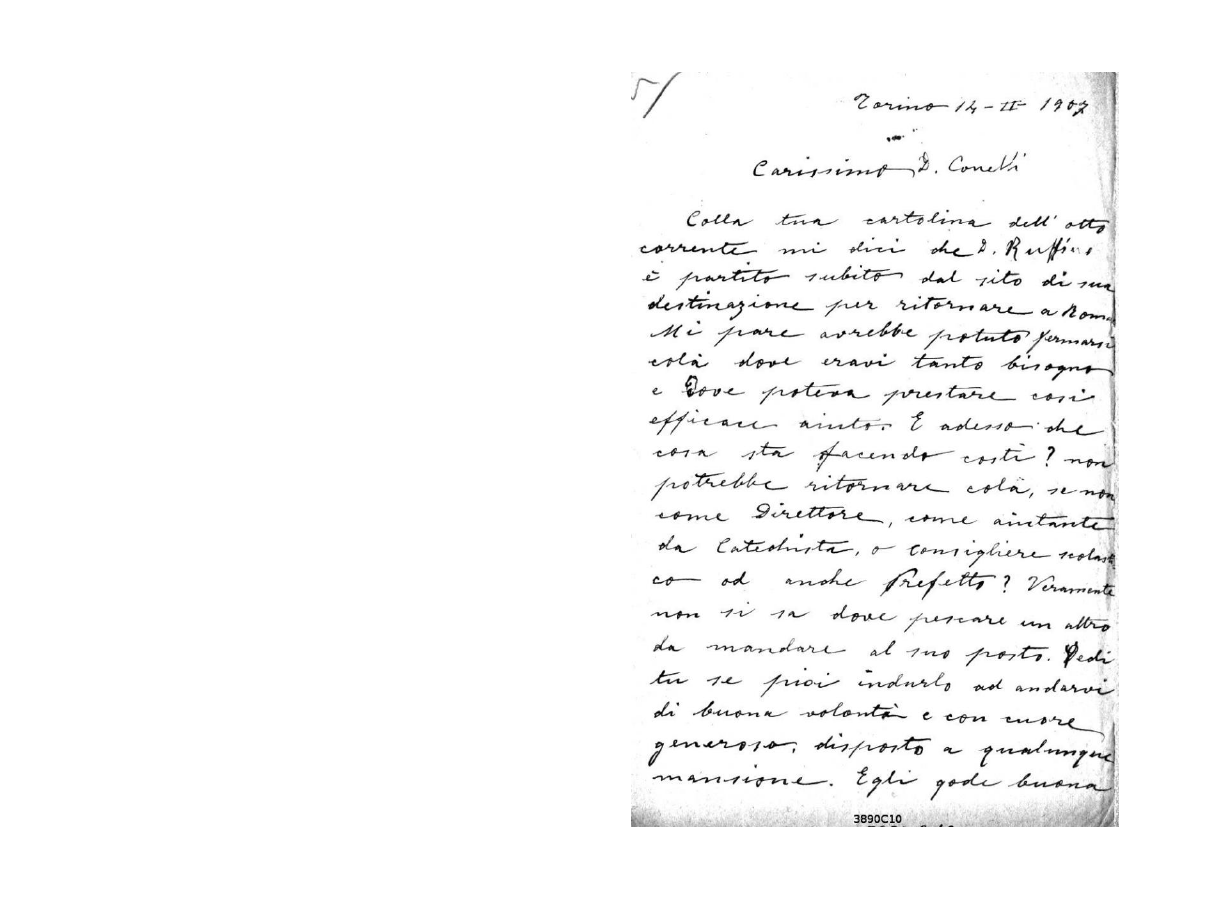 5/
Torino 14-II 1907
Carissimo D. Conelli
Colla tua cartolina dell'otto
corrente mi dici che D. Ruffino
è partito subito dal sito di sua
destinazione per ritornare a Roma
Mi pare avrebbe potuto fermarsi
colà dove eravi tanto bisogno
e dove poteva prestare così
efficace aiuto. E adesso che
cosa sta facendo costì? non
potrebbe ritornare colà, se non
come Direttore, come aiutante
da Catechista, o consigliere scolasti
co od anche Prefetto? Veramente
non si sa dove pescare un altro
da mandare al suo posto. Vedi
tu se puoi indurlo ad andarvi
di buona volontà e con cuore
generoso, disposto a qualunque
mansione. Egli gode buona
3890C10